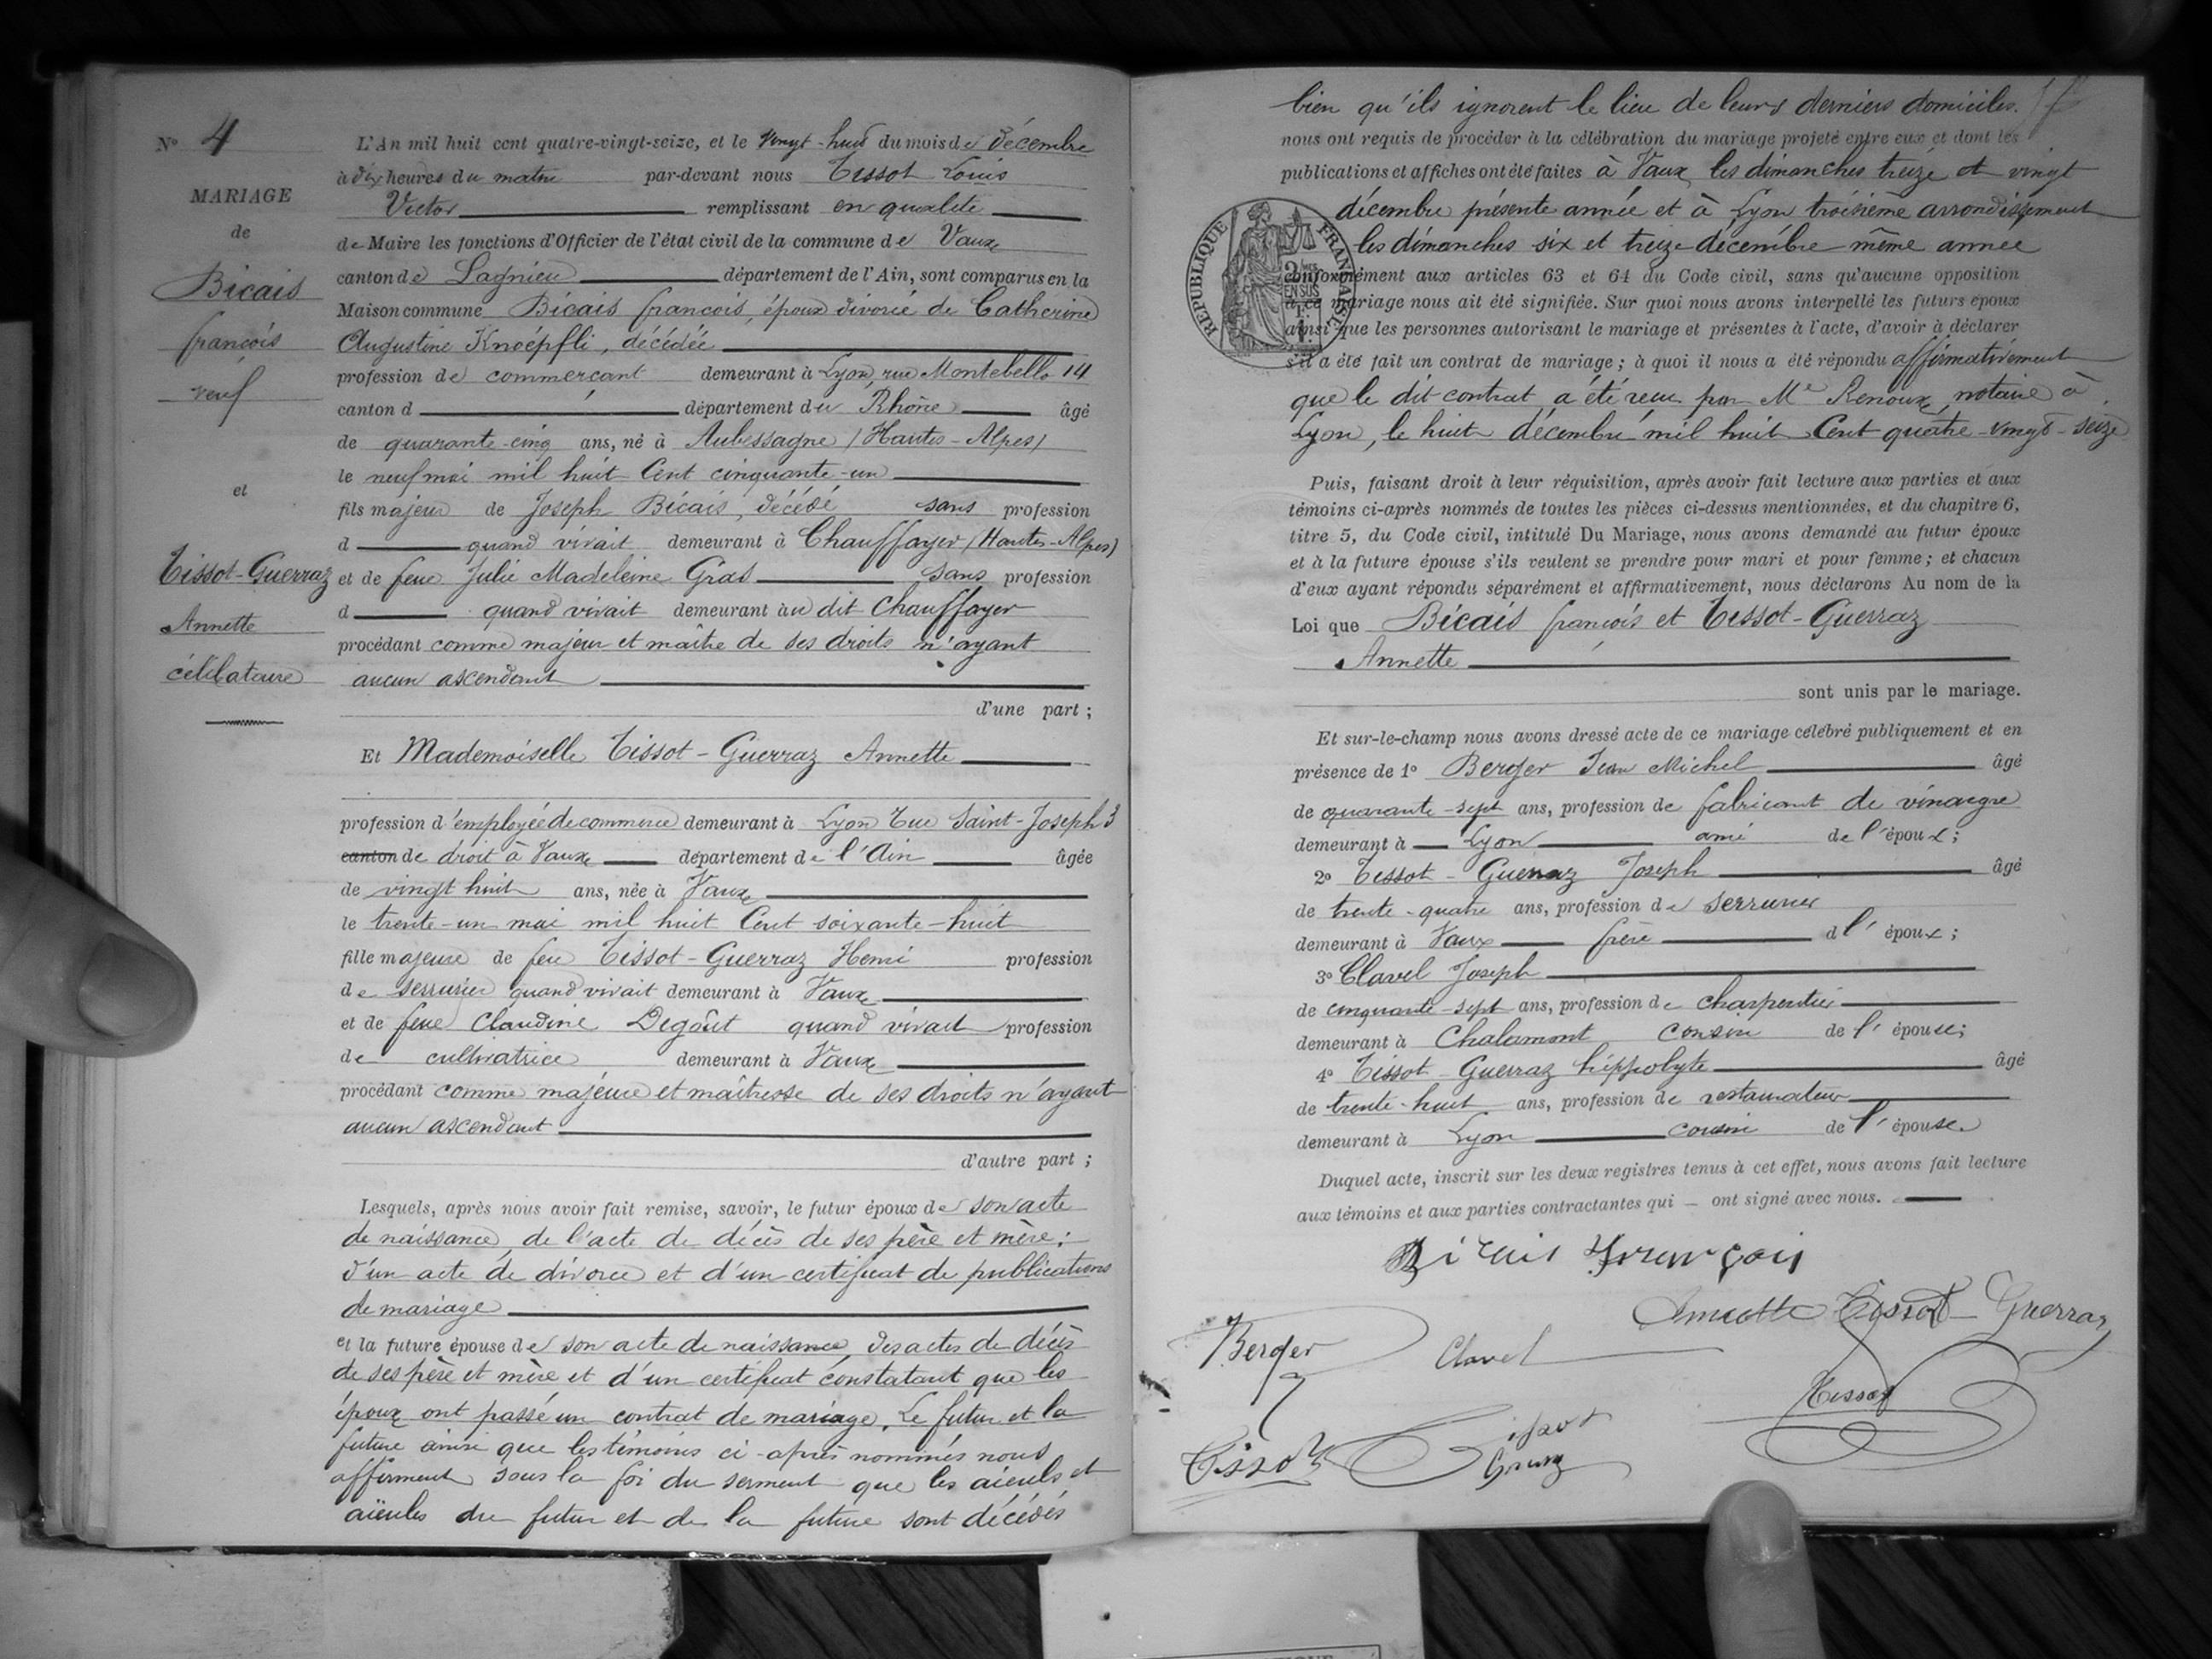 N° 4
MARIAGE
de
Bicais
françois
veuf
et
Tissot-Guerraz
Annette
célibataire
L'An mil huit cent quatre-vingt-seize, et le vingt-huit du mois de décembre
à dix heures du matin par-devant nous Tissot Louis
Victor remplissant en qualité
de Maire les fonctions d'Officier de l'état civil de la commune de Vaux
canton de Lagnieu département de l'Ain, sont comparus en la
Maison commune Bicais françois, époux divorcé de Catherine
Augustine Knoépfli, décédée
profession de commerçant demeurant à Lyon, rue Montebello 14
canton d département du Rhône âgé
de quarante-cinq ans, né à Aubessagne (Hautes-Alpes)
le neuf mai mil huit Cent cinquante-un
fils majeur de Joseph Bicais, décédé sans profession
d quand vivait demeurant à Chauffayer (Hautes-Alpes)
et de feue Julie Madeleine Gras sans profession
d quand vivait demeurant au dit Chauffayer
procédant comme majeur et maître de ses droits n'ayant
aucun ascendant
d'une part ;
Et Mademoiselle Tissot-Guerraz Annette
profession d'employée de commerce demeurant à Lyon rue Saint-Joseph 3
canton de droit à Vaux département de l'Ain âgée
de vingt huit ans, née à Vaux
le trente-un mai mil huit Cent soixante-huit
fille majeure de feu Tissot-Guerraz Henri profession
de serrurier quand vivait demeurant à Vaux
et de feue Claudine Degoût quand vivait profession
de cultivatrice demeurant à Vaux
procédant comme majeure et maîtresse de ses droits n'ayant
aucun ascendant
d'autre part ;
Lesquels, après nous avoir fait remise, savoir, le futur époux de son acte
de naissance, de l'acte de décès de ses père et mère ;
d'un acte de divorce et d'un certificat de publications
de mariage
et la future épouse de son acte de naissance, des actes de décès
de ses père et mère et d'un certificat constatant que les
époux ont passé un contrat de mariage. Le futur et la
future ainsi que les témoins ci-après nommés nous
affirment sous la foi du serment que les aïeuls et
aïeules du futur et de la future sont décédés
bien qu'ils ignorent le lieu de leurs derniers domiciles.
nous ont requis de procéder à la célébration du mariage projeté entre eux et dont les
publications et affiches ont été faites à Vaux les dimanches treize et vingt
décembre présente année et à Lyon troisième arrondissement
les dimanches six et treize décembre même année
RÉPUBLIQUE FRANÇAISE
conformément aux articles 63 et 64 du Code civil, sans qu'aucune opposition
à ce mariage nous ait été signifiée. Sur quoi nous avons interpellé les futurs époux
ainsi que les personnes autorisant le mariage et présentes à l'acte, d'avoir à déclarer
s'il a été fait un contrat de mariage ; à quoi il nous a été répondu affirmativement
que le dit contrat a été reçu par Me Renoux, notaire à
Lyon, le huit décembre mil huit Cent quatre-vingt-seize
Puis, faisant droit à leur réquisition, après avoir fait lecture aux parties et aux
témoins ci-après nommés de toutes les pièces ci-dessus mentionnées, et du chapitre 6,
titre 5, du Code civil, intitulé Du Mariage, nous avons demandé au futur époux
et à la future épouse s'ils veulent se prendre pour mari et pour femme ; et chacun
d'eux ayant répondu séparément et affirmativement, nous déclarons Au nom de la
Loi que Bicais françois et Tissot-Guerraz
Annette
sont unis par le mariage.
Et sur-le-champ nous avons dressé acte de ce mariage célébré publiquement et en
présence de 1° Berger Jean Michel âgé
de quarante-sept ans, profession de fabricant de vinaigre
demeurant à Lyon ami de l'époux ;
2° Tissot-Guerraz Joseph âgé
de trente-quatre ans, profession de serrurier
demeurant à Vaux frère d l'époux ;
3° Clavel Joseph
de cinquante-sept ans, profession de charpentier
demeurant à Chalamont cousin de l'épouse ;
4° Tissot-Guerraz hippolyte âgé
de trente-huit ans, profession de restaurateur
demeurant à Lyon cousin de l'épouse
Duquel acte, inscrit sur les deux registres tenus à cet effet, nous avons fait lecture
aux témoins et aux parties contractantes qui ont signé avec nous.
Bicais François
Annette Tissot-Guerraz
Berger Clavel
Tissot
Tissot
Tissot